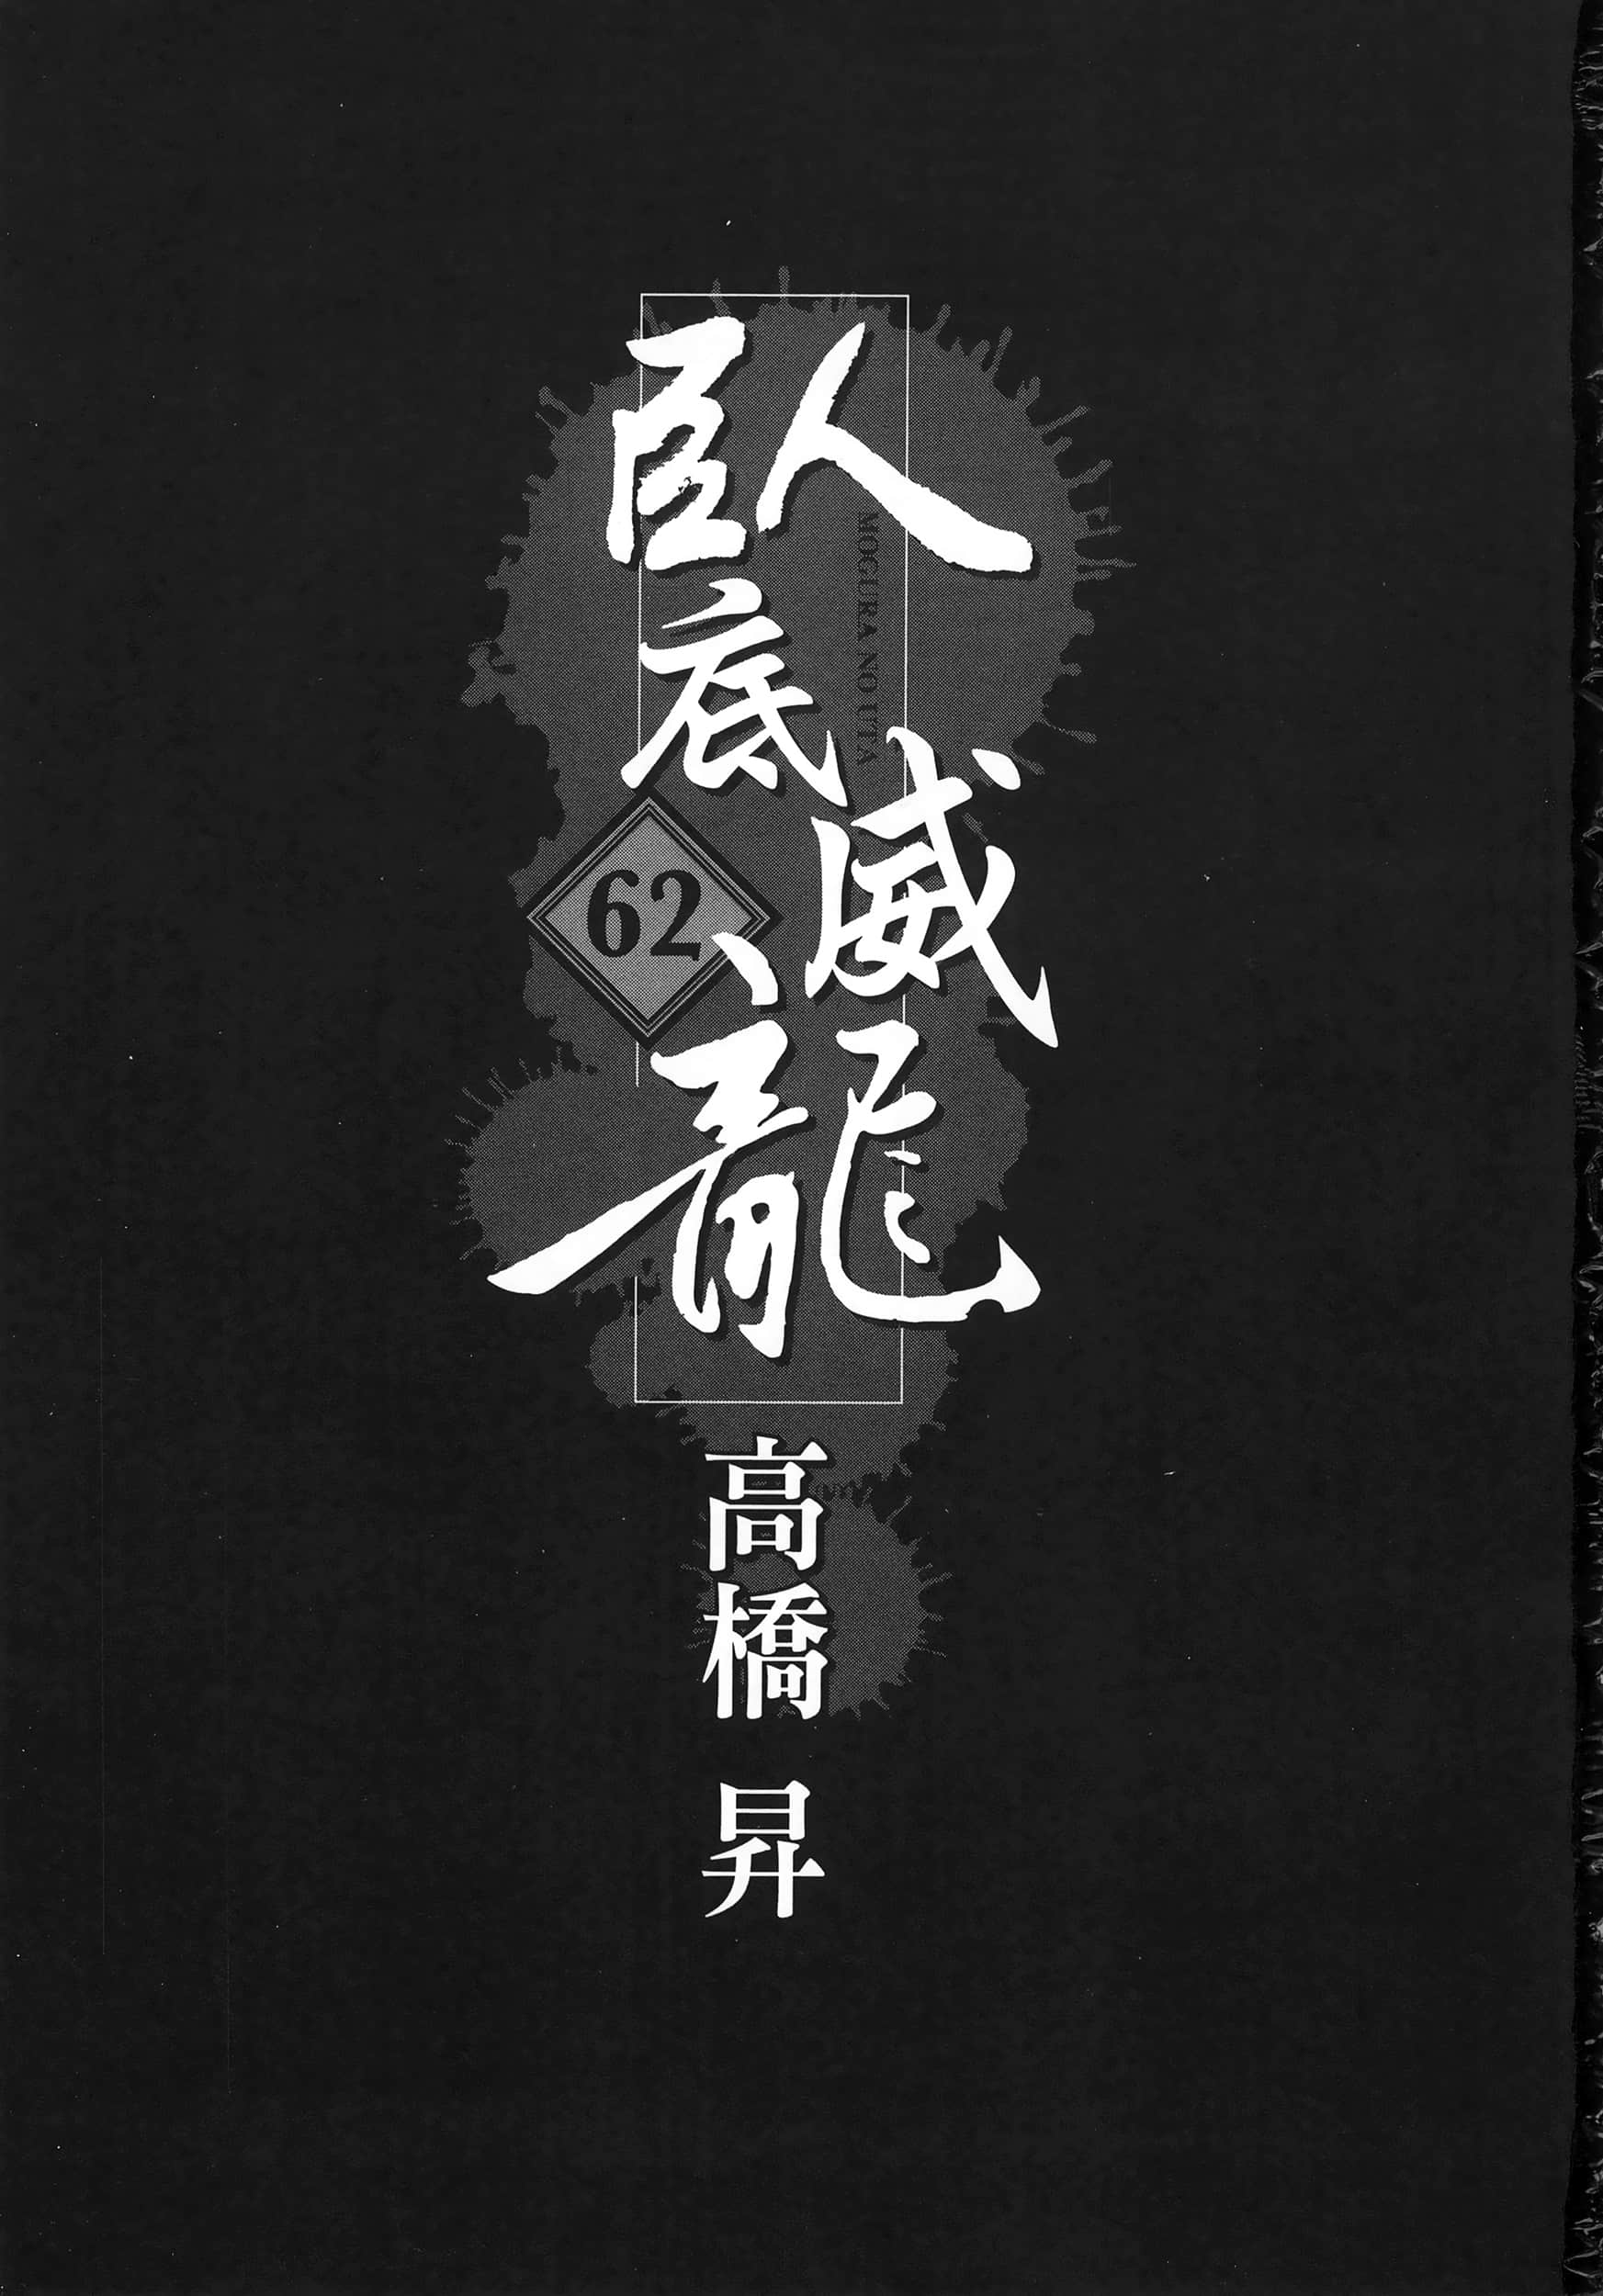 臥底威龍
MOGURA NO UTA
62
高橋 昇